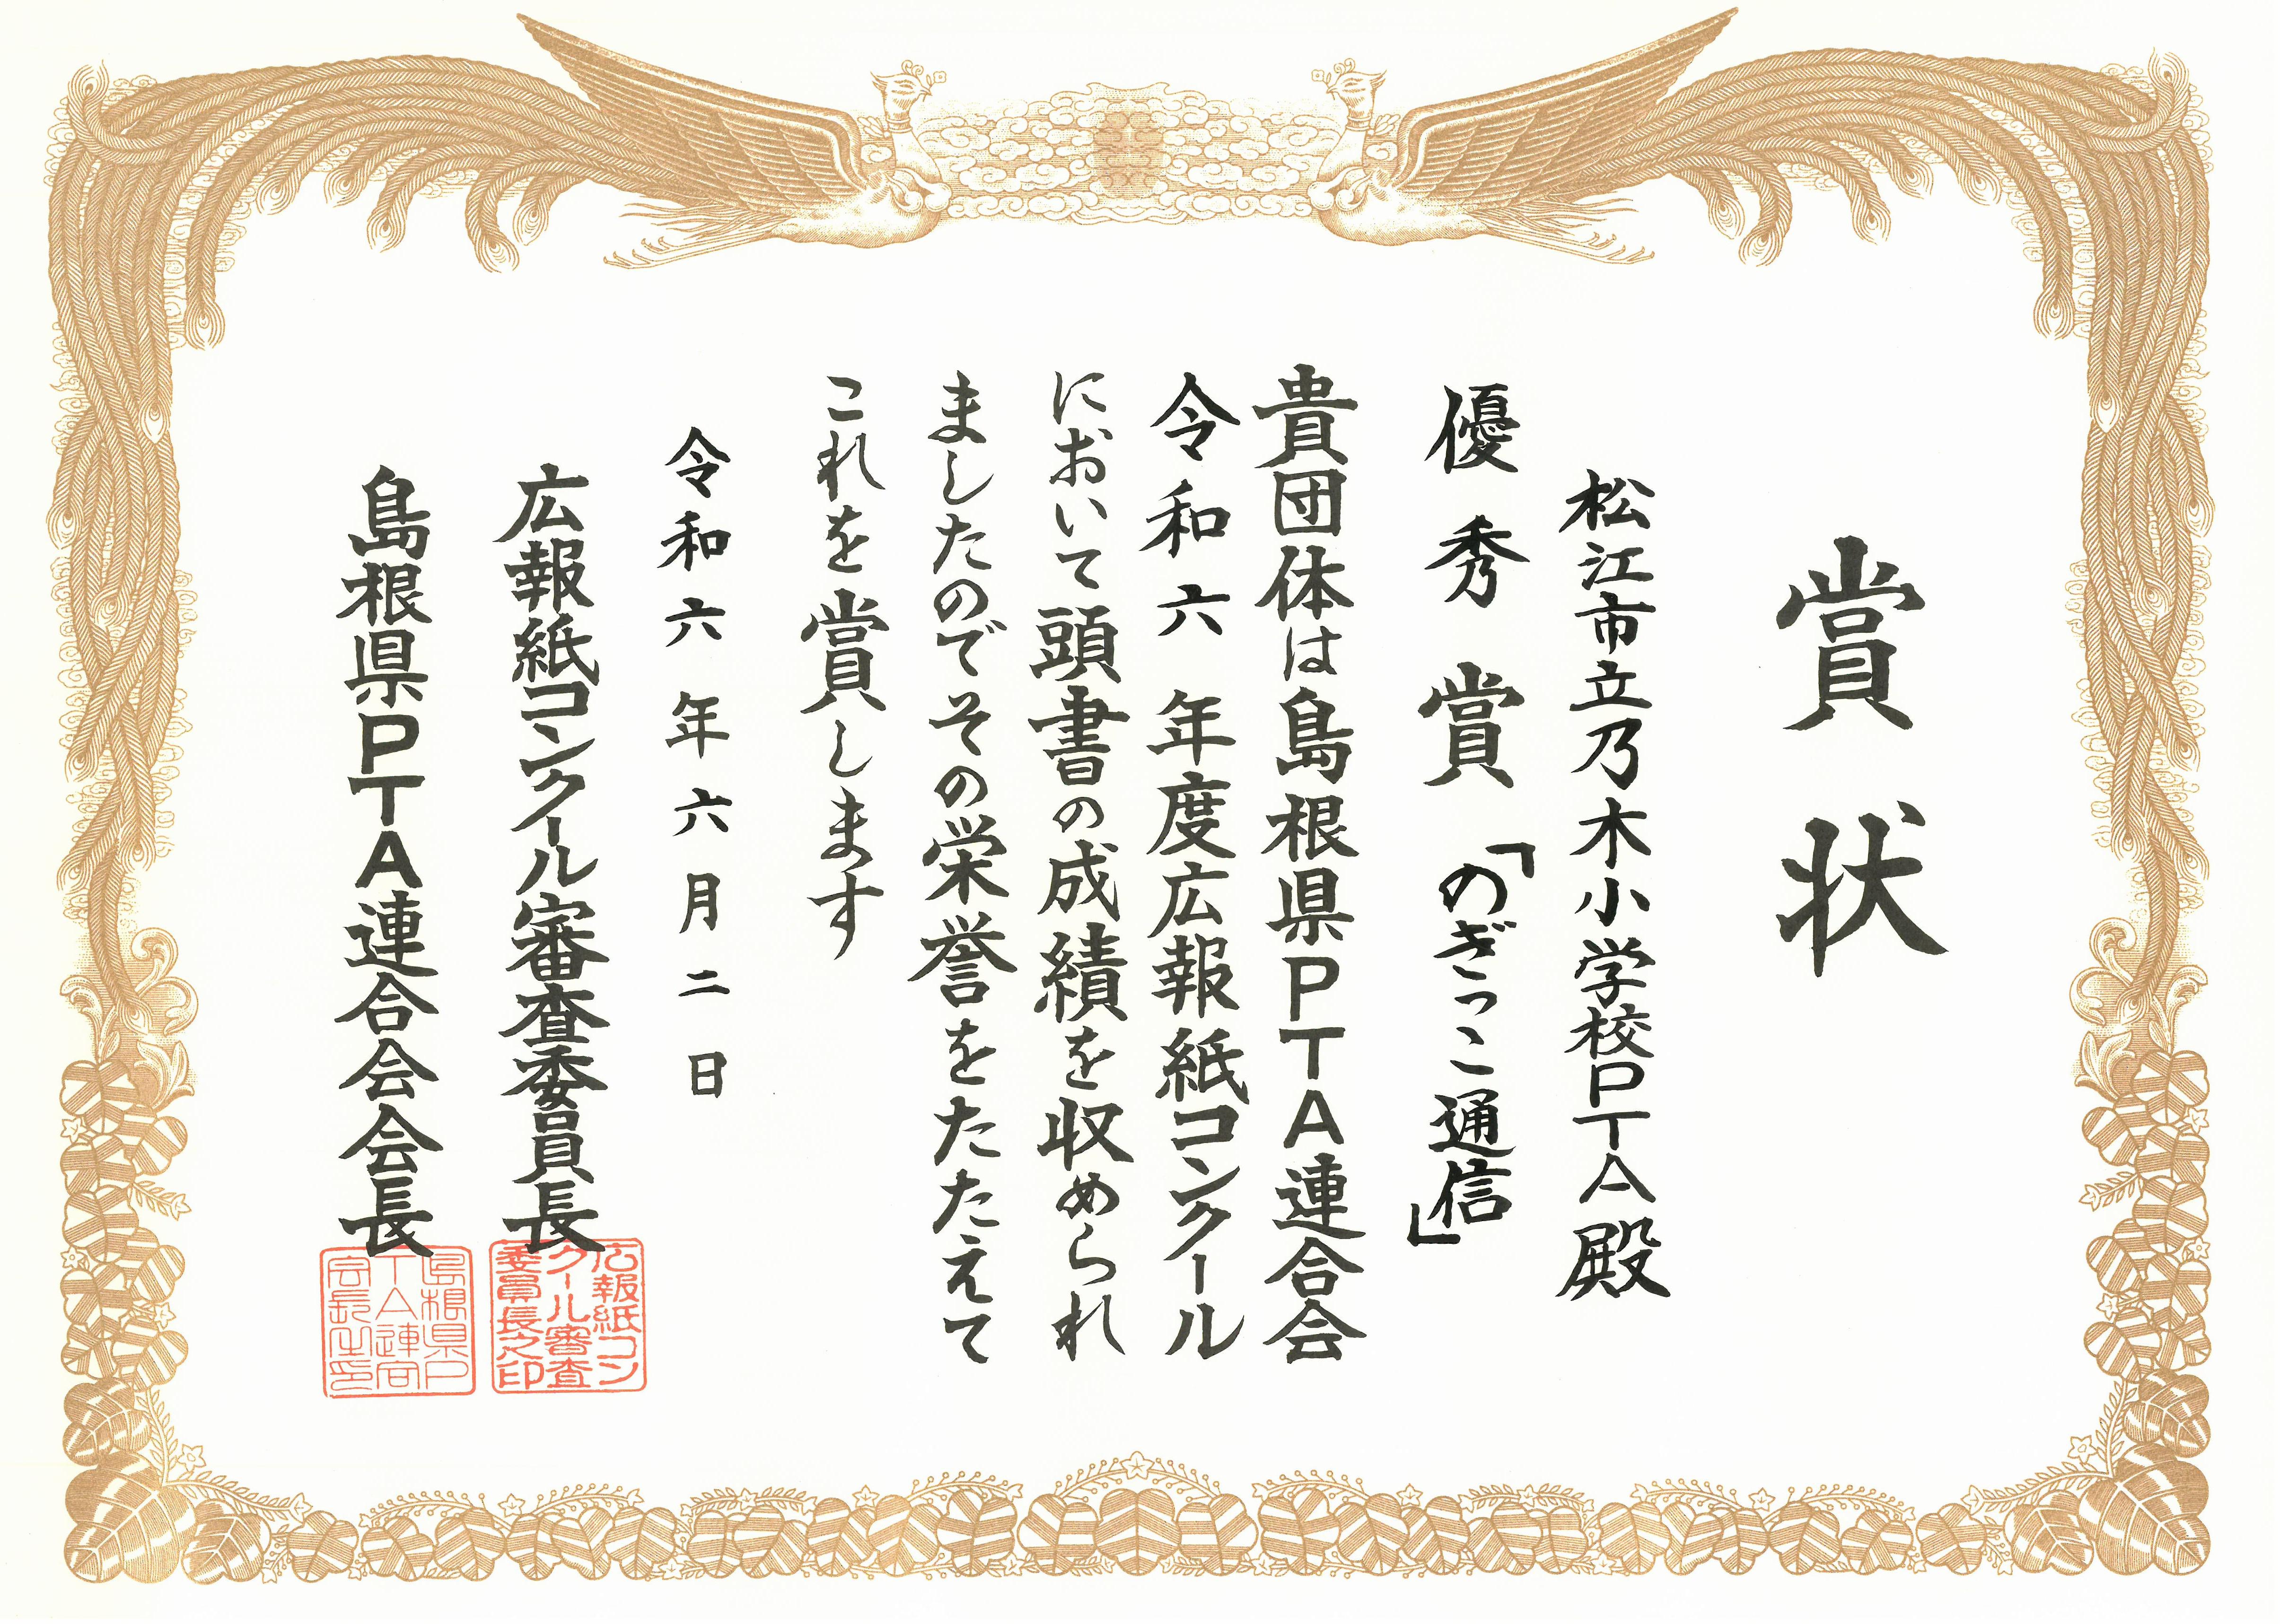 賞状
松江市立乃木小学校PTA殿
優秀賞「のぎっこ通信」
貴団体は島根県PTA連合会
令和六年度広報紙コンクール
において頭書の成績を収められ
ましたのでその栄誉をたたえて
これを賞します
令和六年六月二日
広報紙コンクール審査委員長
広報紙コン
クール審査
委員長之印
島根県PTA連合会会長
島根県P
TA連合
会長之印